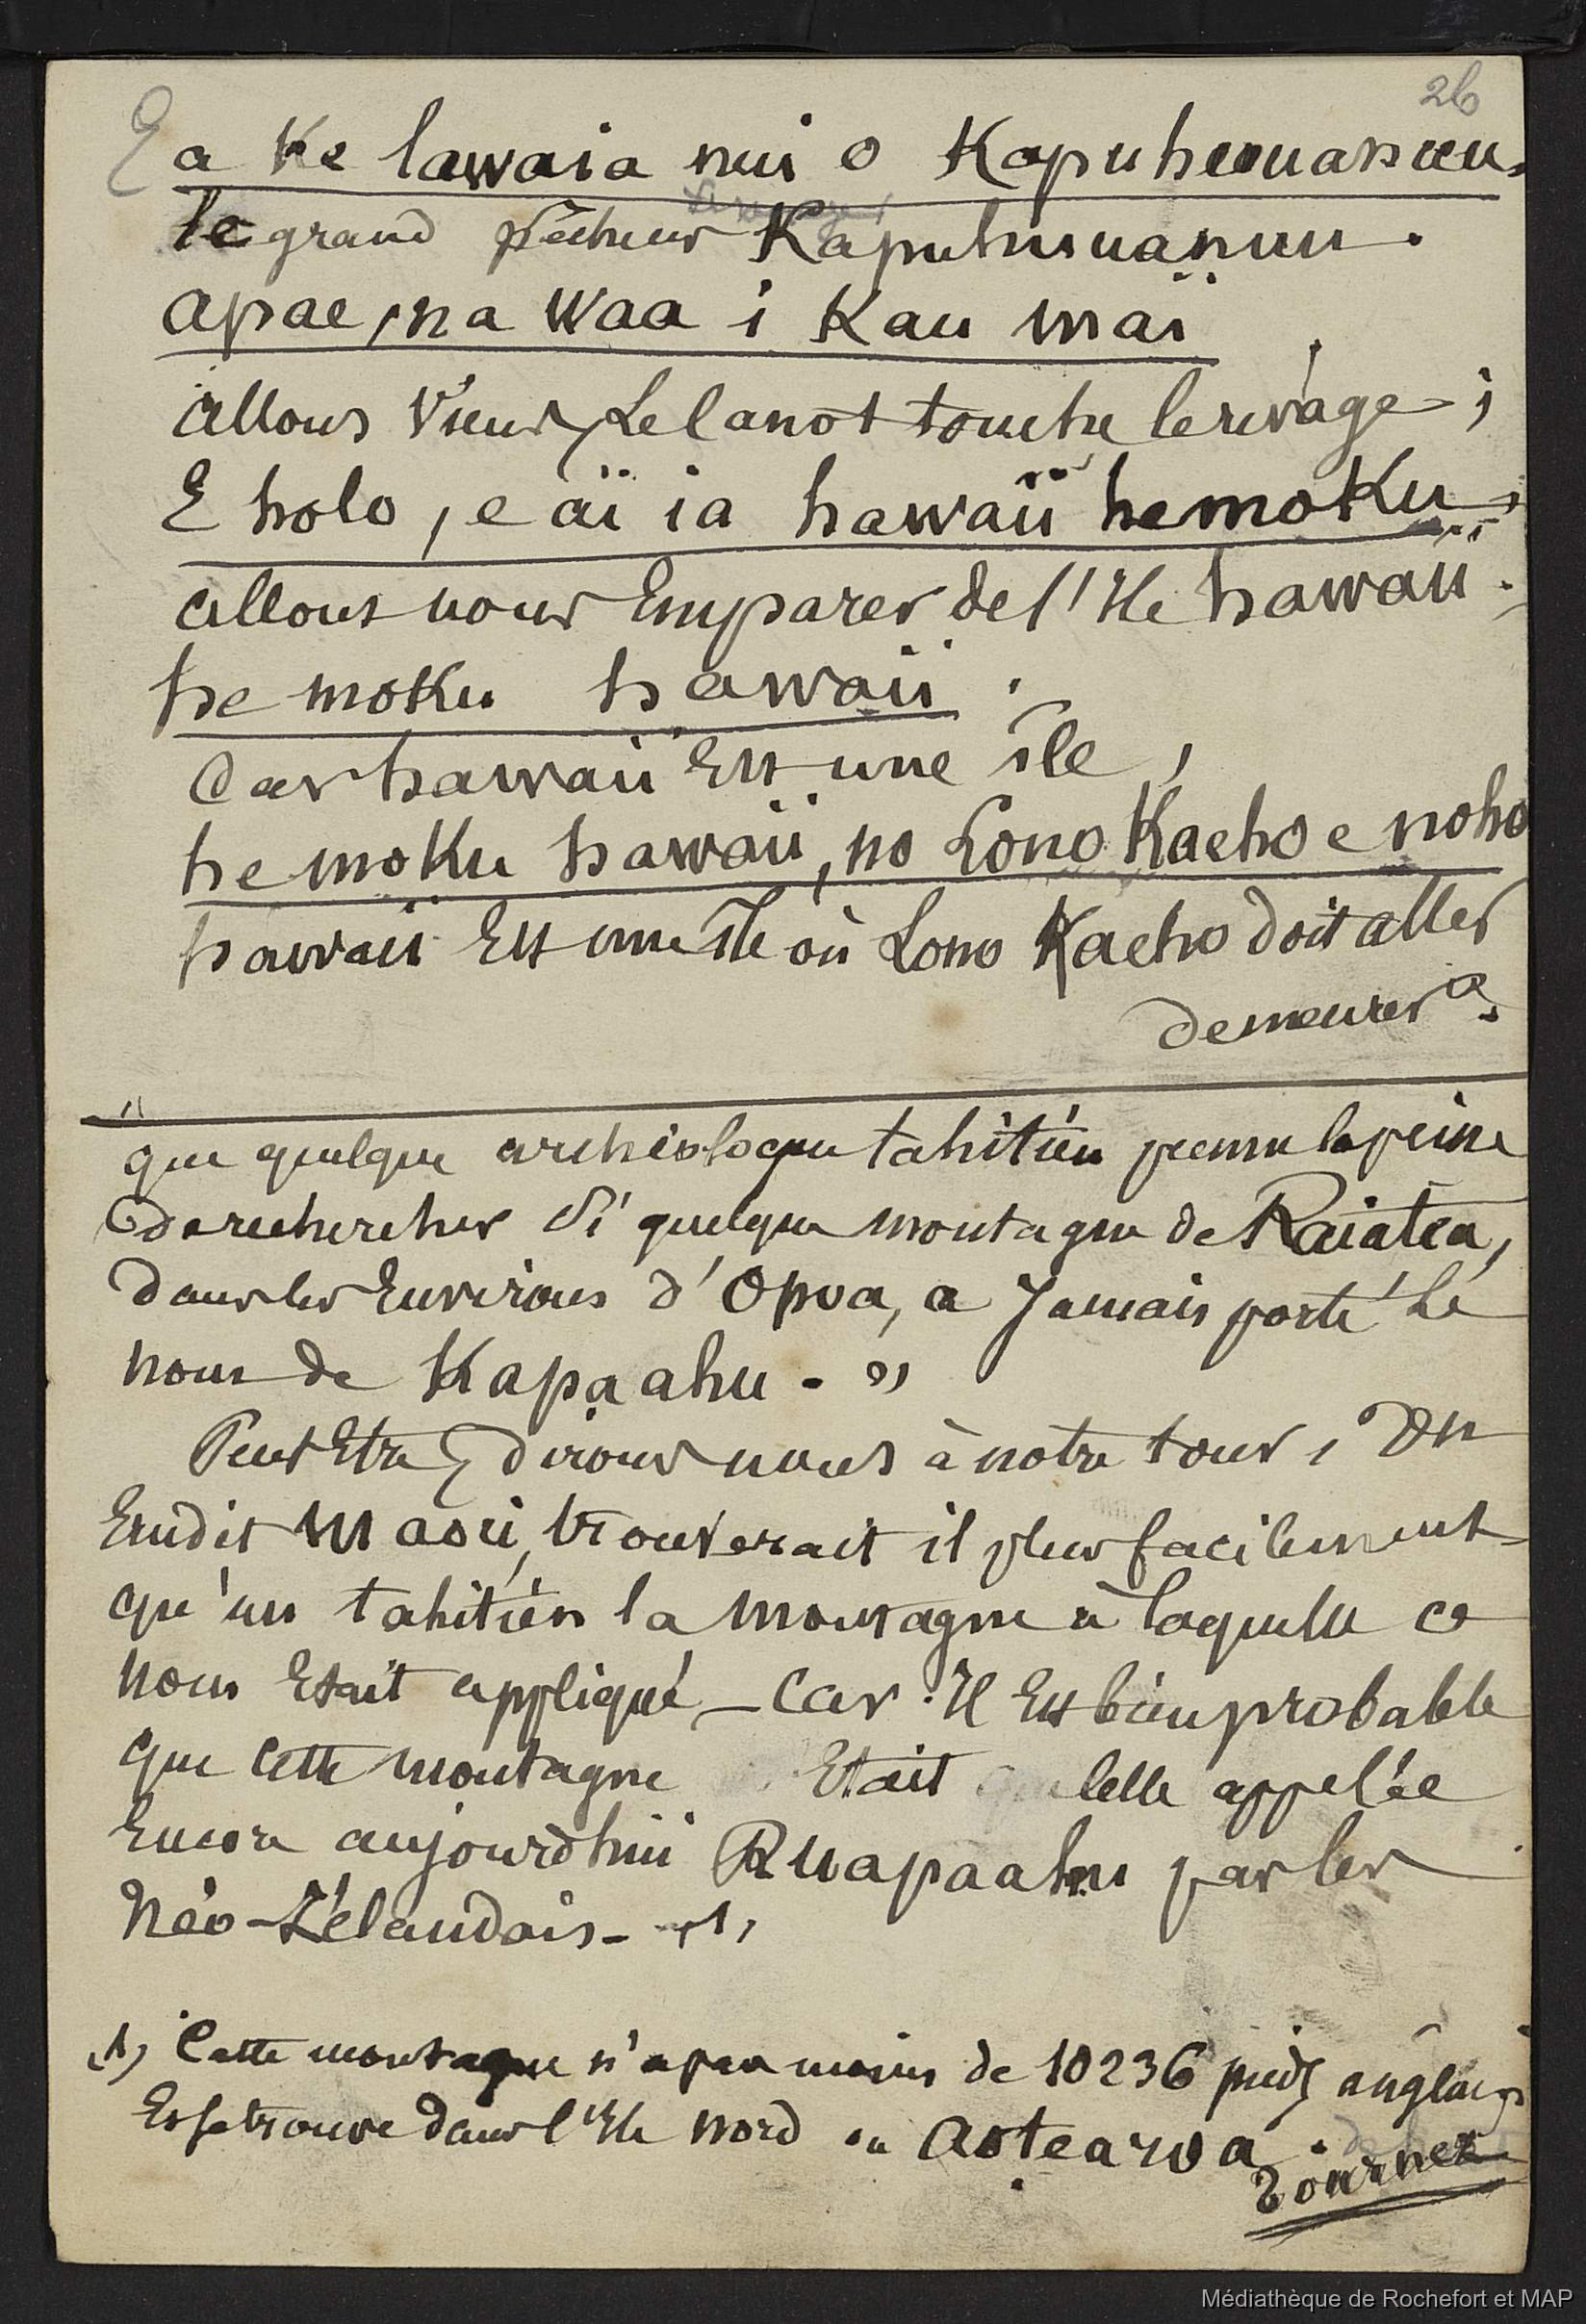 26
E a Ke lawaia nui o Kapuheeuanuu.
le grand pêcheur Kapuheeuanuu.
apae, na waa i Kau mai
allons vieux, le Canot touche le rivage ;
E holo, e ai ia hawaii he moku,
allons nous Emparer de l'Ile hawaii.
he moku hawaii.
Car hawaii Est une île,
he moku hawaii, no Lono Kaeho e noho
hawaii Est une Ile où Lono Kaeho doit aller
demeurer
"
que quelque archéologue tahitien prenne la peine
de rechercher si quelque montagne de Raiatea,
dans les Environs d'Opoa, a Jamais porté Le
nom de Kapaahu - "
Peut Etre, dirons nous à notre tour, Un
Erudit Maori, trouverait il plus facilement
qu'un tahitien la montagne à laquelle ce
nom Etait appliqué - Car Il Est bien probable
que cette montagne Etait celle appelée
Encore aujourdhui Ruapaahu par les
Néo-Zélandais - (1)
(1) Cette montagne n'a pas moins de 10236 pieds anglais
Et se trouve dans l'Ile Nord ou Aotearoa.
Tournez
Médiathèque de Rochefort et MAP